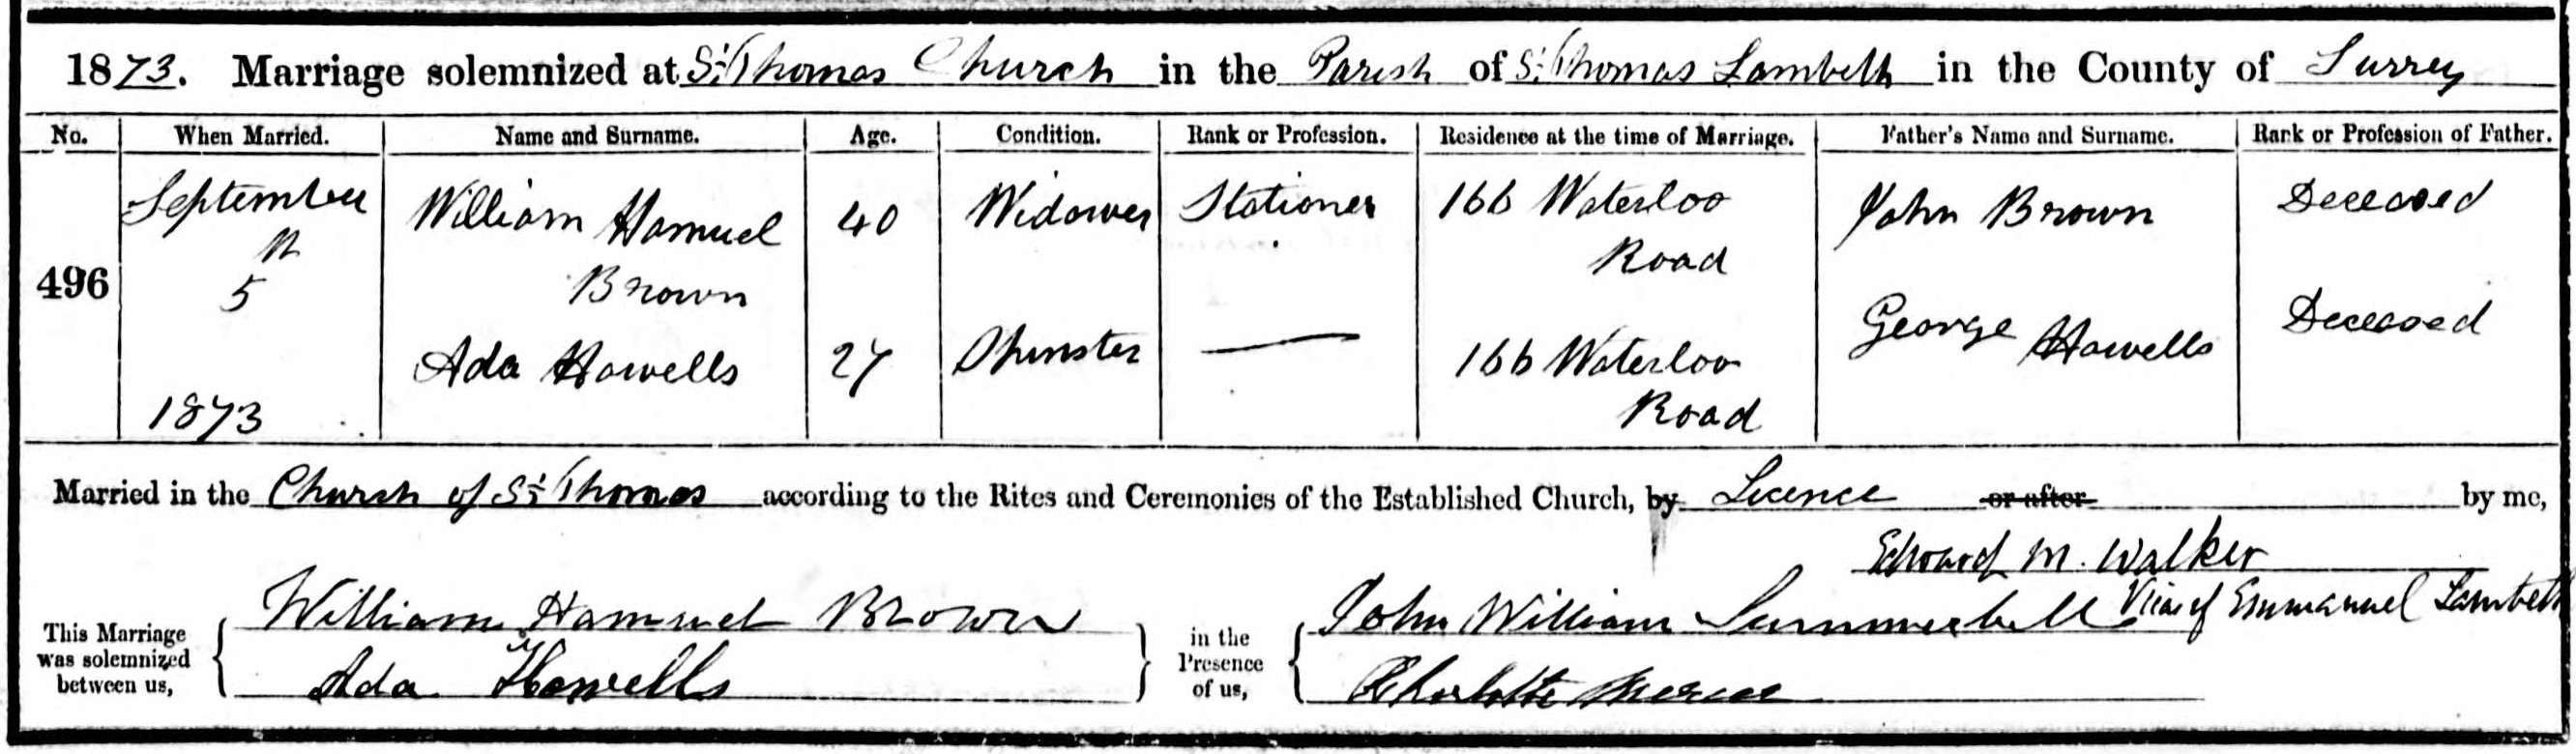 1873. Marriage solemnized at St. Thomas Church in the Parish of St. Thomas Lambeth in the County of Surrey
No. When Married. Name and Surname. Age. Condition. Rank or Profession. Residence at the time of Marriage. Father's Name and Surname. Rank or Profession of Father.
496
September
5
1873
William Hamuel
Brown
40 Widower Stationer 166 Waterloo
Road
John Brown Deceased
Ada Howells 27 Spinster — 166 Waterloo
Road
George Howells Deceased
Married in the Church of St. Thomas according to the Rites and Ceremonies of the Established Church, by Licence or after by me,
Edward M. Walker
Vicar of Emmanuel Lambeth
This Marriage
was solemnized
between us,
William Hamuel Brown
Ada Howells
in the
Presence
of us,
John William Summerbell
Charlotte Mercer